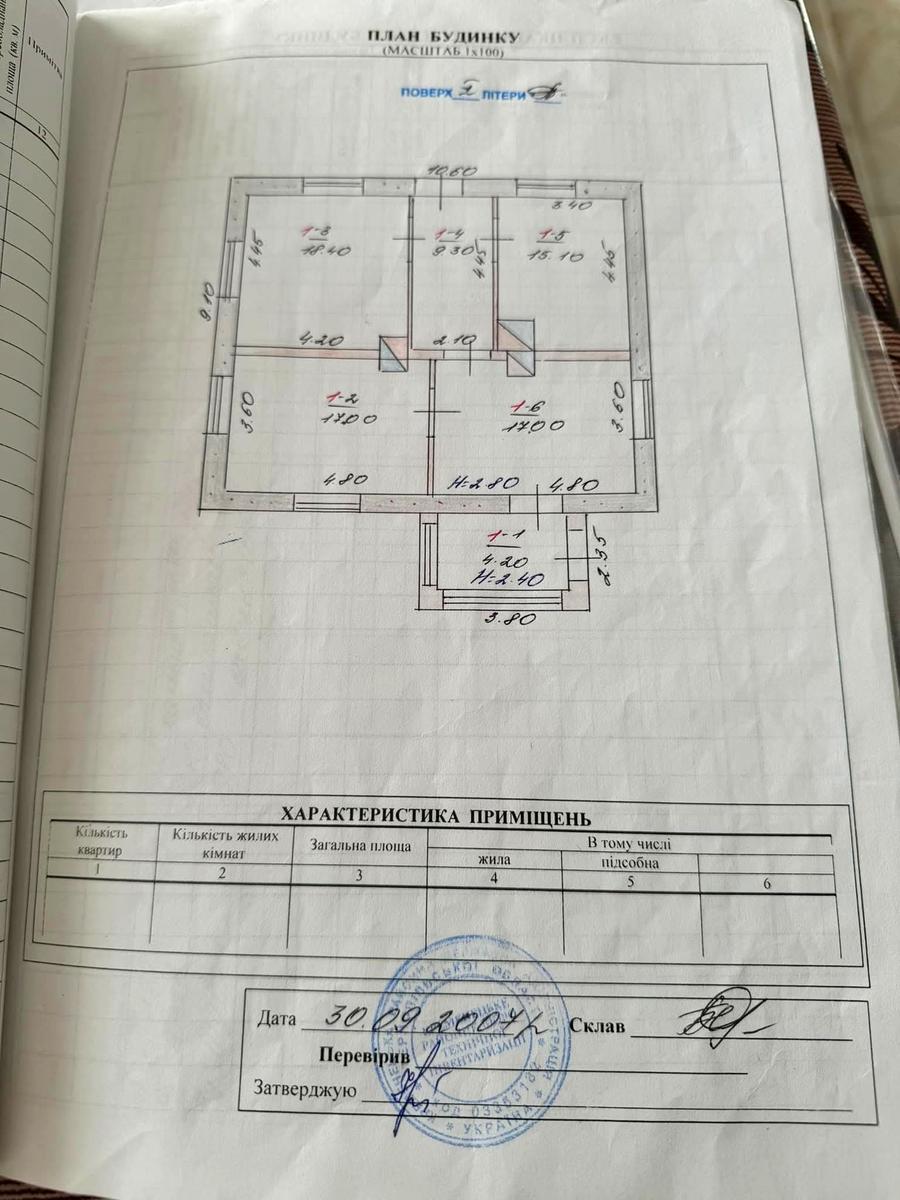 площа (кв. м)
12
ПЛАН БУДИНКУ
(МАСШТАБ 1х100)
ПОВЕРХ I ЛІТЕРИ
10.60
3.40
1-3
18.40
1-4
9.30
1-5
15.10
4.45
4.45
4.45
9.10
4.20
2.10
1-2
17.00
1-6
17.00
3.60
3.60
4.80
H=2.80
4.80
1-1
4.20
H=2.40
2.35
3.80
ХАРАКТЕРИСТИКА ПРИМІЩЕНЬ
Кількість квартир
Кількість жилих кімнат
Загальна площа
В тому числі
жила
підсобна
1 2 3 4 5 6
Дата 30.09.2007р Склав
Перевірив
Затверджую
ТЕХНІЧНОЇ
ІНВЕНТАРИЗАЦІЇ
* УКРАЇНА *